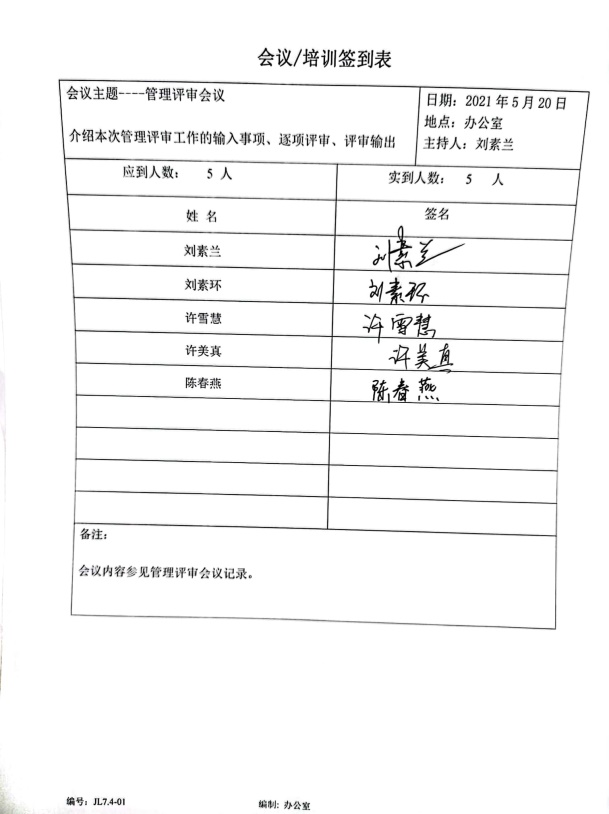 会议/培训签到表
会议主题----管理评审会议
介绍本次管理评审工作的输入事项、逐项评审、评审输出
日期：2021年5月20日
地点：办公室
主持人：刘素兰
应到人数： 5 人 实到人数： 5 人
姓 名 签名
刘素兰 刘素兰
刘素环 刘素环
许雪慧 许雪慧
许美真 许美真
陈春燕 陈春燕
备注：
会议内容参见管理评审会议记录。
编号：JL7.4-01 编制: 办公室